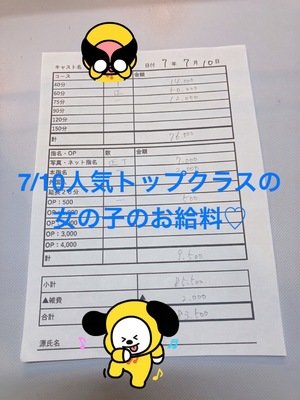 キャスト名
日付 7年7月10日
コース 金額
40分 14,000
60分 正
75分 12,000
90分
120分
150分
計 76,000
指名・OP 数 金額
写真・ネット指名 正T 7,000
本指名
7/10人気トップクラスの
女の子のお給料♡
OP:500 一 500
OP:3,000
OP:4,000
計 9,500
小計 85,500
▲雑費 ▲ 2,000
合計 83,500
源氏名